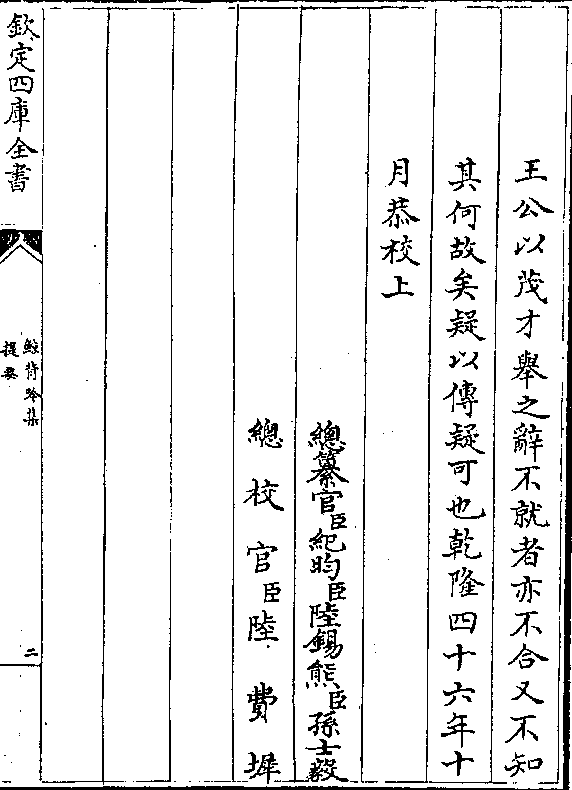 王公以茂才舉之辭不就者亦不合又不知
其何故矣疑以傳疑可也乾隆四十六年十
月恭校上
總纂官臣紀昀臣陸錫熊臣孫士毅
總校官臣陸費墀
欽定四庫全書
鯨背吟集
提要
二